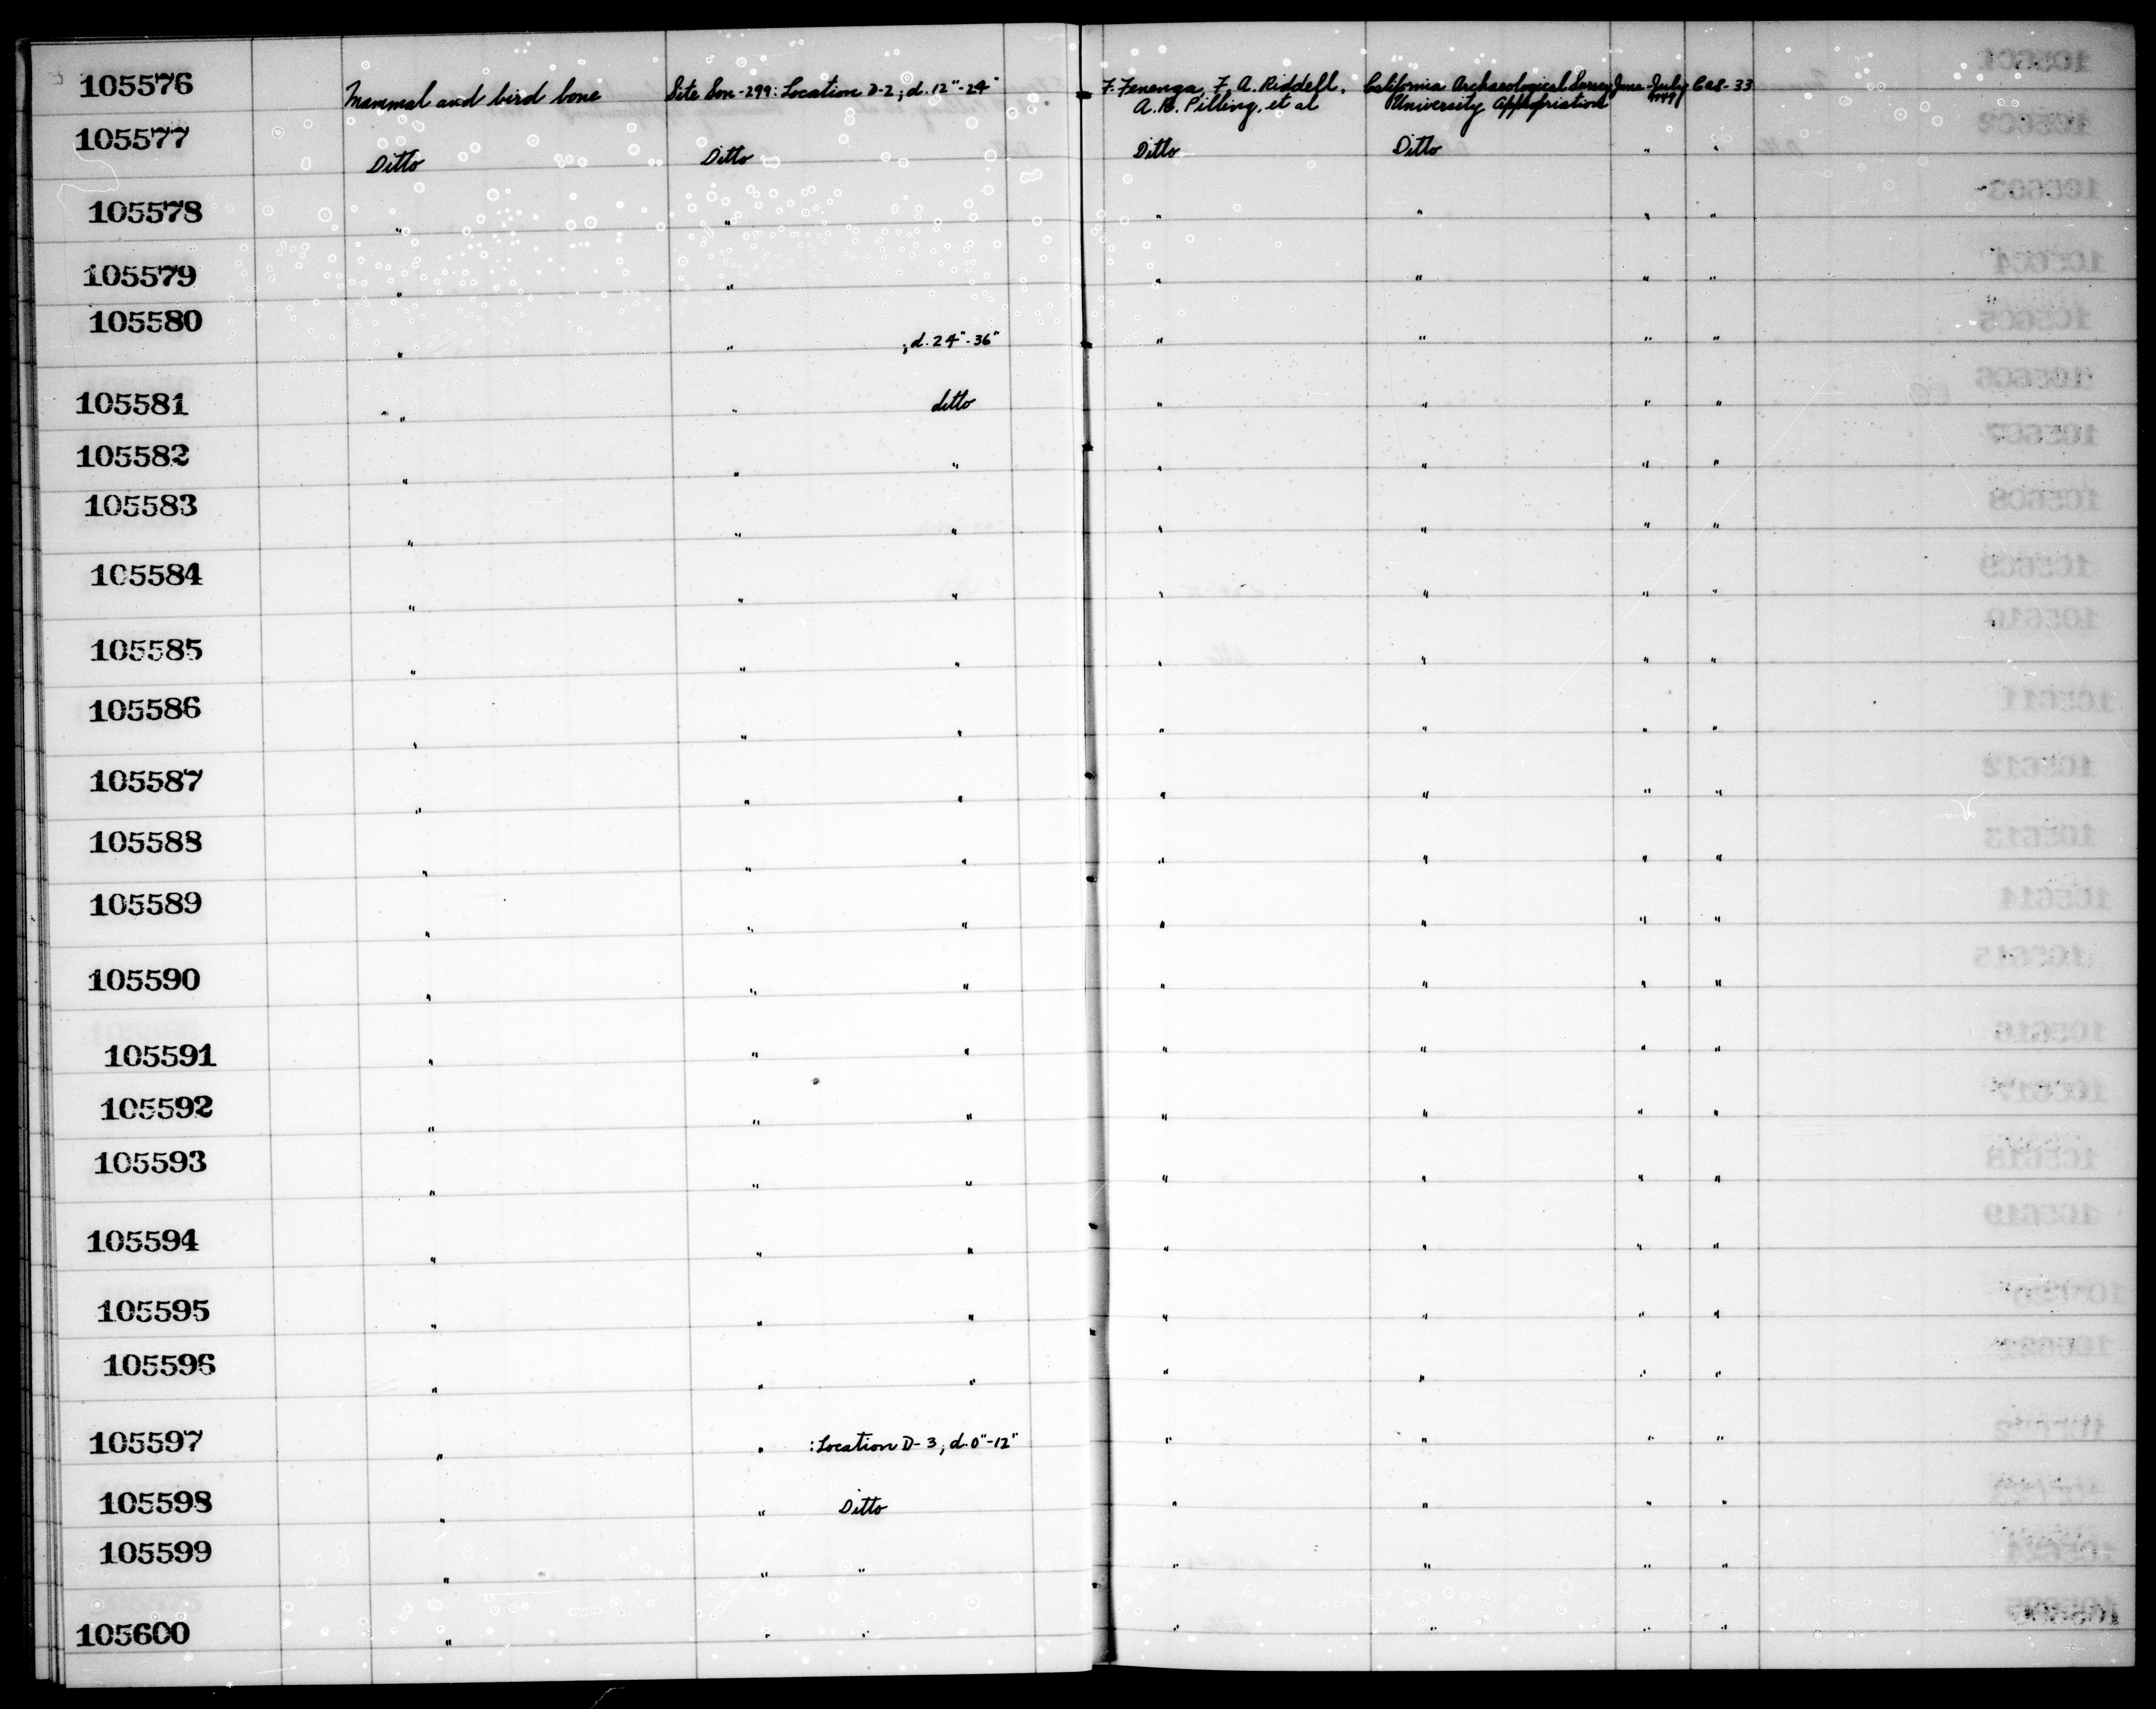 105576 Mammal and bird bone Site Son-299: Location D-2; d. 12"-24" F. Fenenga, F. A. Riddell, California Archaeological Survey June-July Cas-33
A. R. Pilling, et al University Appropriation 1949
105577 Ditto Ditto Ditto Ditto " "
105578 " " " " " "
105579 " " " " " "
105580 " " ; d. 24"-36" " " " "
105581 " " ditto " " " "
105582 " " " " " " "
105583 " " " " " " "
105584 " " " " " " "
105585 " " " " " " "
105586 " " " " " " "
105587 " " " " " " "
105588 " " " " " " "
105589 " " " " " " "
105590 " " " " " " "
105591 " " " " " " "
105592 " " " " " " "
105593 " " " " " " "
105594 " " " " " " "
105595 " " " " " " "
105596 " " " " " " "
105597 " " : Location D-3; d. 0"-12" " " " "
105598 " " Ditto " " " "
105599 " " " " " " "
105600 " " " " " " "